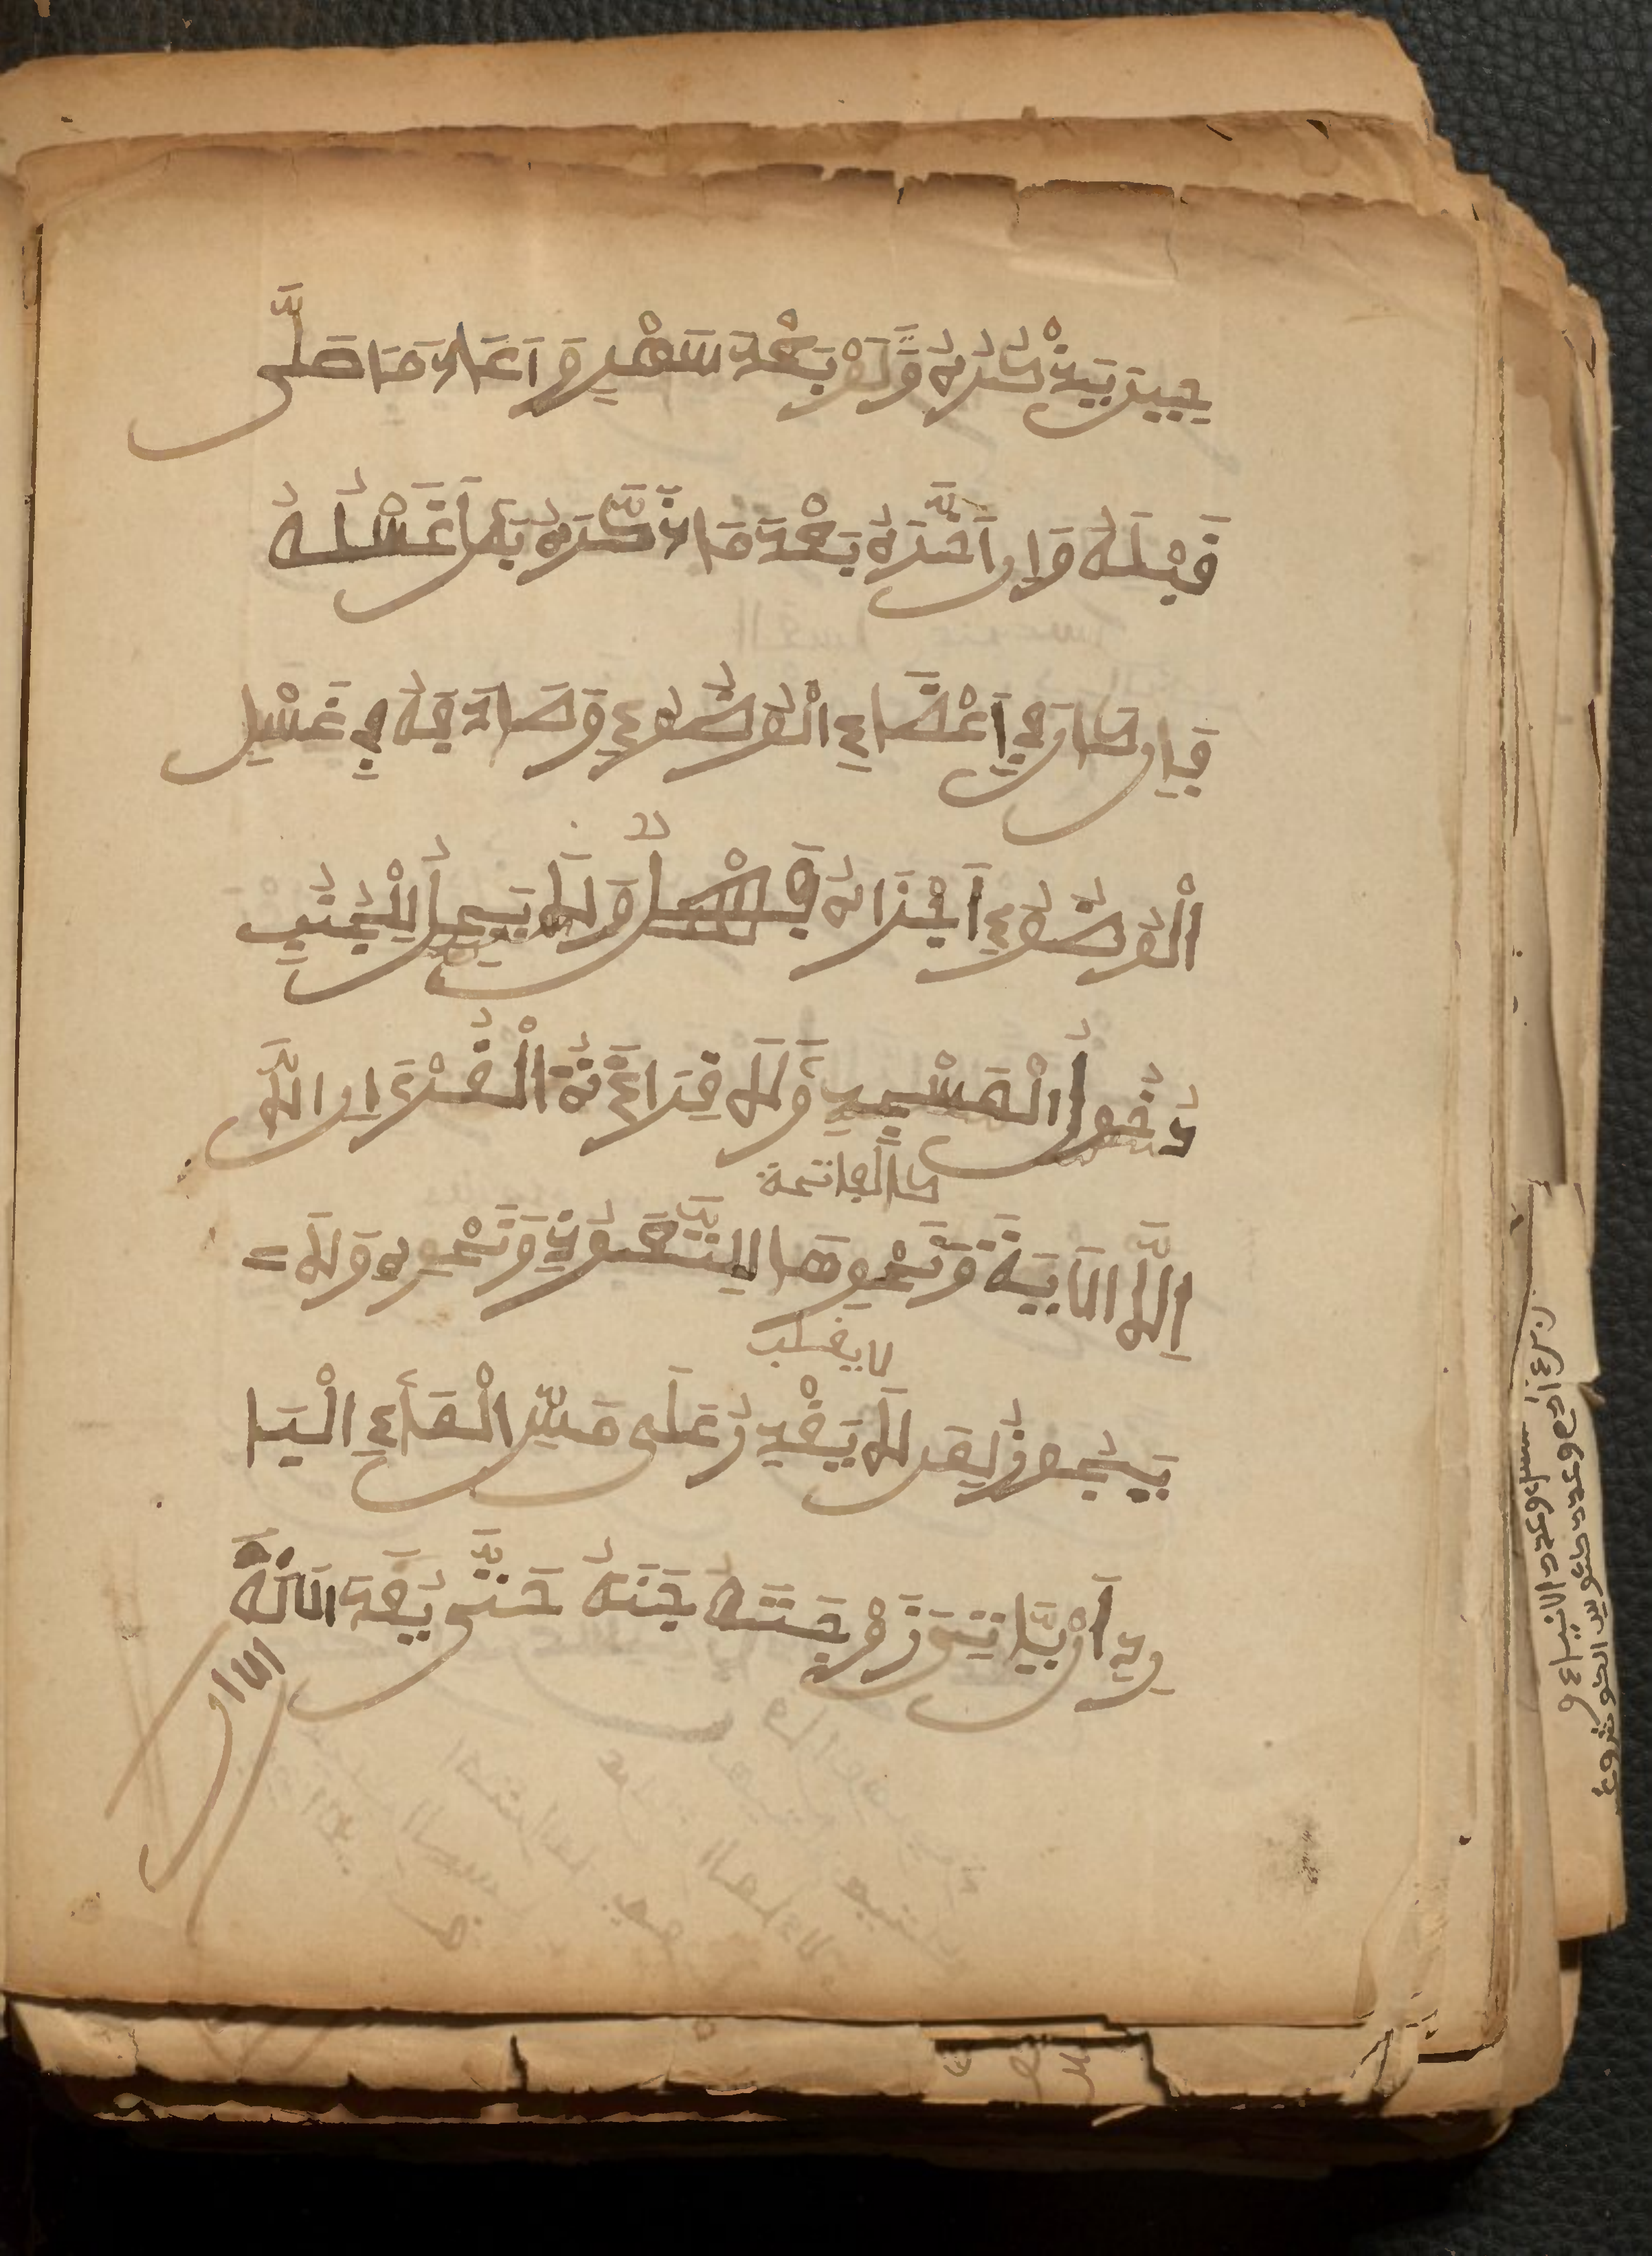 حِينَ يَذْكُرُهُ وَلَوْ بَعْدَ شَهْرٍ وَاَعَادَ مَا صَلَّى
قَبْلَهُ وَإِن اَخَّرَهُ بَعْدَ مَا ذَكَّرَهُ بَطَلَ غَسْلُهُ
فَإِن كَانَ فِي اَعْضَاءِ الْوُضُوءِ وَصَادَفَهُ فِي غَسْلِ
الْوُضُوءِ اَجْزَاهُ فَصْلٌ وَلَا يَحِلُّ لِلْجُنُبِ
دُخُولُ الْمَسْجِدِ وَلَا قِرَاءَةُ الْقُرْءَانِ اِلَّا
كالفاتحة
اِلَّا الْاَيَةَ وَنَحْوِهَا لِلتَّعَوُّذِ وَنَحْوِهِ وَلَا
لا يغسلب
يَجُوزُ لِمَن لَا يَقْدِرُ عَلَى مَسِّ الْمَاءِ الْبَا
رِدِ اَنْ يَّاتِيَ زَوْجَتَهُ حَتَّى يُعِدَّ الْاَلَةَ
الا ان